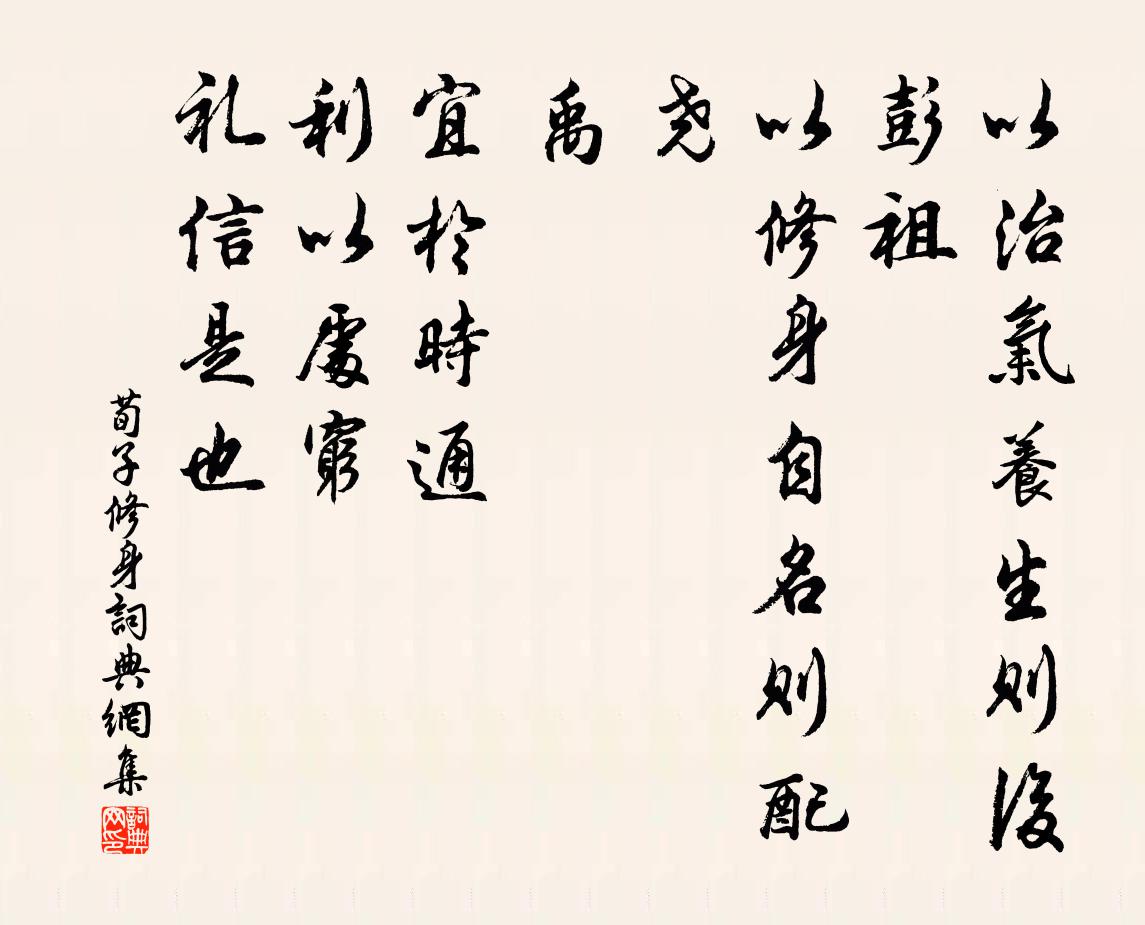 以治氣養生則後
彭祖
以修身自名則配
尧
禹
宜於時通
利以處窮
礼信是也
荀子修身詞典網集
詞典
网印